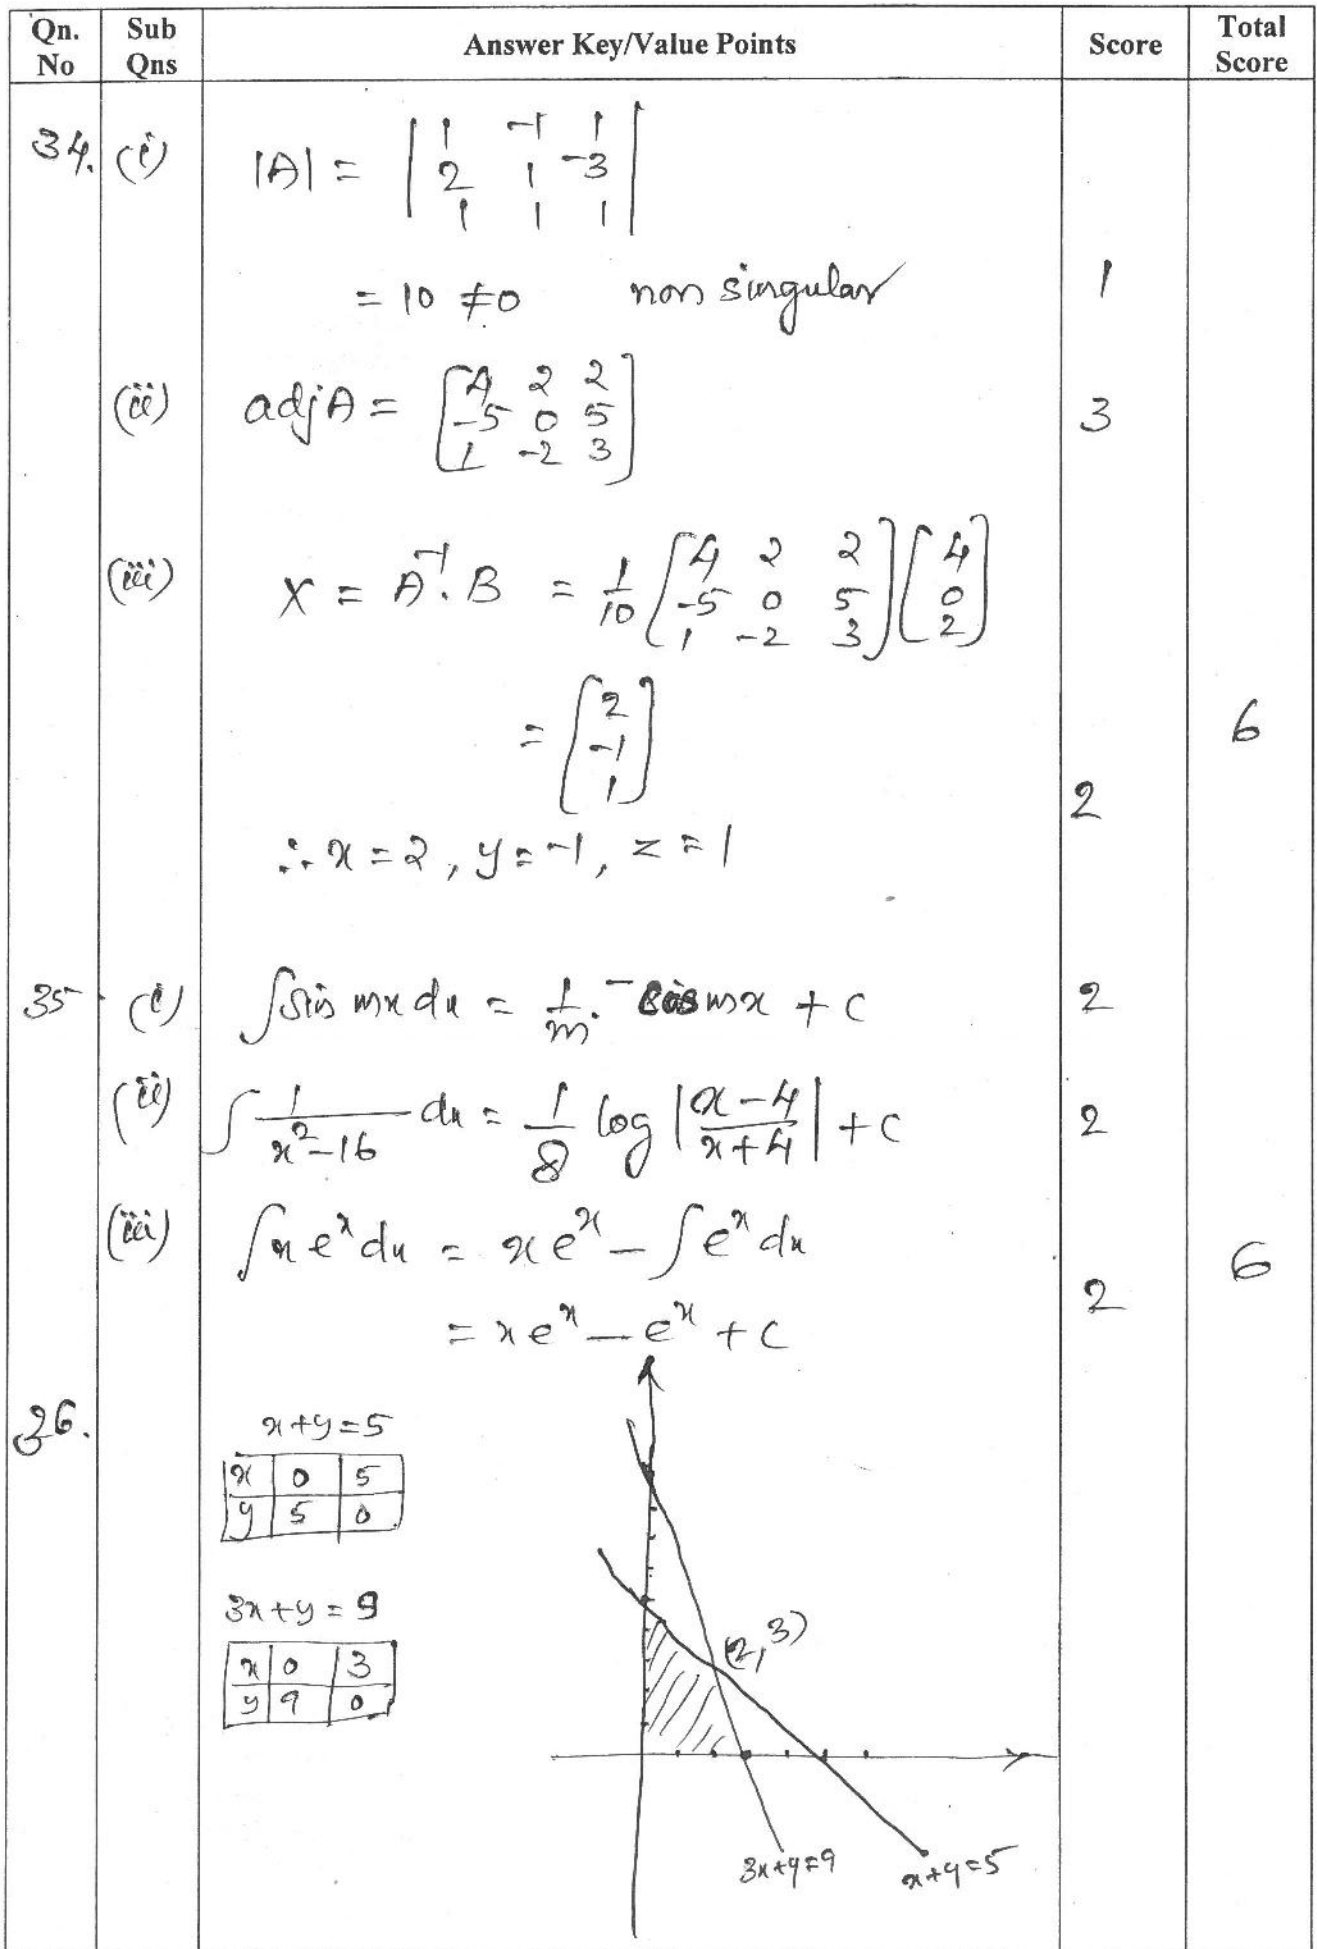 Qn. No | Sub Qns | Answer Key/Value Points | Score | Total Score
34. (i) |A| = | 1 -1 1 |
| 2 1 -3 |
| 1 1 1 |
= 10 ≠ 0 non singular 1
(ii) adj A = [ 4 2 2 ] 3
[ -5 0 5 ]
[ 1 -2 3 ]
(iii) X = A⁻¹. B = 1/10 [ 4 2 2 ] [ 4 ]
[ -5 0 5 ] [ 0 ]
[ 1 -2 3 ] [ 2 ]
= [ 2 ]
[ -1 ]
[ 1 ]
6
2
∴ x = 2, y = -1, z = 1
35 (i) ∫sin mx dx = 1/m . -cos mx + c 2
(ii) ∫ 1/(x²-16) dx = 1/8 log |(x-4)/(x+4)| + c 2
(iii) ∫x eˣ dx = x eˣ - ∫eˣ dx 6
= x eˣ - eˣ + c 2
36.
x+y=5
x | 0 | 5
y | 5 | 0
3x+y=9
x | 0 | 3
y | 9 | 0
(2,3)
3x+y=9
x+y=5